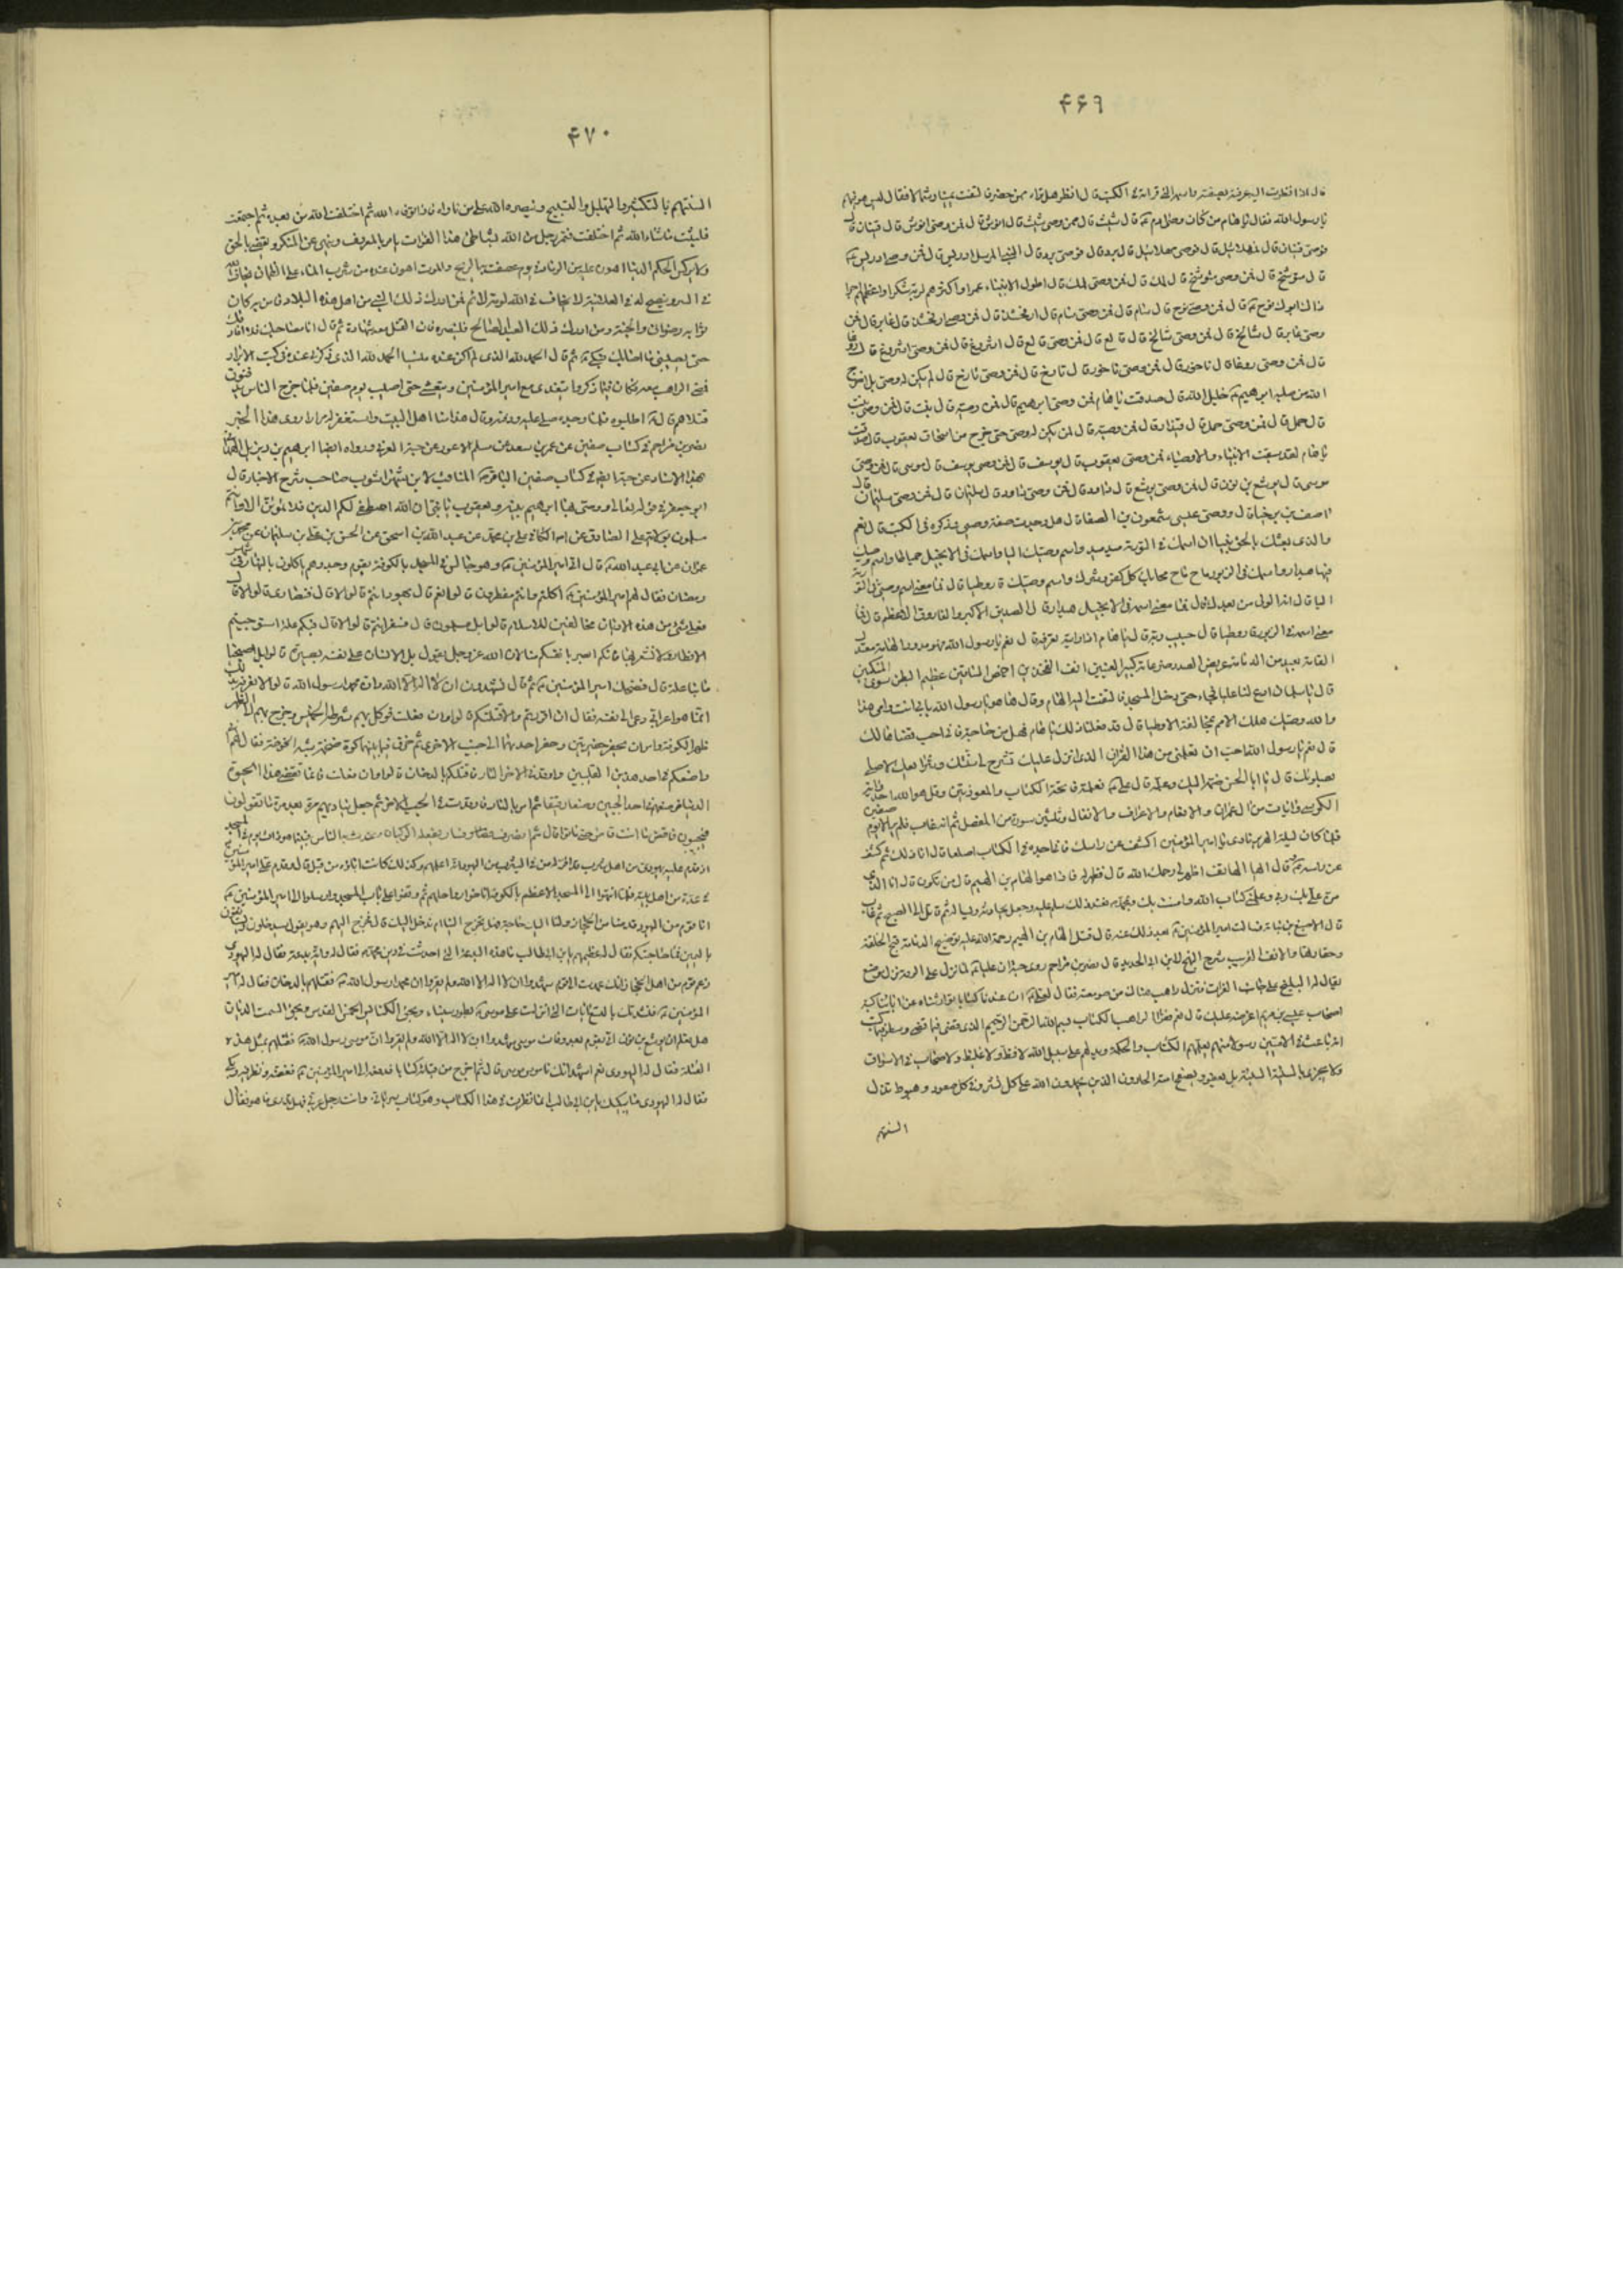 ۴۶۹
قال اذا نظرت اليه عرفته بصفته واسمه الذي قرأته في الكتب قال انظر هل تراه فيمن حضر فالتفت يمينا وشمالا فقال ليس هو فيهم
يا رسول الله فقال يا هام من كان وصي ادم ع قال شيث قال فمن وصي شيث قال انوش قال فمن وصي انوش قال قينان قال
فوصي قينان قال مهلائيل قال فوصي مهلائيل قال برد قال فوصي برد قال النبي المرسل ادريس قال فمن وصي ادريس ع
قال متوشلخ قال فمن وصي متوشلخ قال لمك قال فمن وصي لمك قال اطول الانبياء عمرا واكثرهم لربه شكرا واعظمهم اجرا
ذاك ابوك نوح ع قال فمن وصي نوح قال سام قال فمن وصي سام قال ارفخشد قال فمن وصي ارفخشد قال عابر قال فمن
وصي عابر قال شالخ قال فمن وصي شالخ قال قالع قال فمن وصي قالع قال اشروغ قال فمن وصي اشروغ قال روعا
قال فمن وصي روعا قال ناخور قال فمن وصي ناخور قال تارخ قال فمن وصي تارخ قال لم يكن له وصي بل اخرج
الله من صلبه ابرهيم ع خليل الله قال صدقت يا هام فمن وصي ابرهيم قال فمن وصيه قال نبت قال فمن وصي نبت
قال حمل قال فمن وصي حمل قال قيذار قال فمن وصيه قال لم يكن له وصي حتى خرج من اسحاق يعقوب قال صدقت
يا هام لقد سبقت الانبياء والاوصياء فمن وصي يعقوب قال يوسف قال فمن وصي يوسف قال موسى قال فمن وصي
موسى قال يوشع بن نون قال فمن وصي يوشع قال داود قال فمن وصي داود قال سليمن قال فمن وصي سليمان قال
اصف بن برخيا قال ووصي عيسى شمعون بن الصفا قال هل وجدت صفة وصيي وذكره في الكتب قال نعم
والذي بعثك بالحق نبيا ان اسمك في التورية ميد ميد واسم وصيك اليا واسمك في الانجيل حمياطا واسم وصيك
فيها هيدار واسمك في الزبور ماح ماح محا بك كل كفر وشرك واسم وصيك قاروطيا قال فما معنى اسم وصيي في التورية
اليا قال انه الولي من بعدك قال فما معنى اسمه في الانجيل هيدار قال الصديق الاكبر والفاروق الاعظم قال فما
معنى اسمه في الزبور قاروطيا قال حبيب ربه قال يا هام اذا رايته تعرفه قال نعم يا رسول الله فهو مدور الهامة معتدل
القامة بعيد من الدمامة عريض الصدر ضرغامة كبير العينين انف الفخذين اخمص الساقين عظيم البطن سوي المنكبين
قال يا سلمان ادع لنا عليا فجاء حتى دخل المسجد فالتفت اليه الهام وقال ها هو يا رسول الله بابي انت وامي هذا
والله وصيك
قال نعم يا رسول الله احب ان تعلمني من هذا القران الذي انزل عليك
بصلوتك قال يا ابا الحسن ضمه اليك وعلمه قال علي ع فعلمته فاتحة الكتاب والمعوذتين وقل هو الله احد واية
الكرسي وايات من ال عمران والانعام والاعراف والانفال وثلثين سورة من المفصل ثم انه غاب فلم ير الا يوم صفين
فلما كان ليلة الهرير نادى يا امير المؤمنين اكشف عن راسك فاني اجده في الكتاب اصلعا قال انا ذلك ثم كشف
عن راسه ثم قال ايها الهاتف اظهر لي رحمك الله قال فظهر له فاذا هو الهام بن الهيم قال من تكون قال انا الذي
من علي بك ربي وعلمتني كتاب الله وامنت بك وبمحمد ص فعند ذلك سلم عليه وجعل يحادثه ويسائله ثم قاتل الى الصبح ثم غاب
قال الاصبغ بن نباته فسالت امير المؤمنين ع بعد ذلك عنه قال قتل الهام بن الهيم رحمة الله عليه توضيح الدمامة قبح الخلقة
وحقارتها شرح النهج لابن ابي الحديد قال نصر بن مزاحم روى حبة ان عليا ع لما نزل على الرقة نزل بموضع
يقال له البليخ على جانب الفرات فنزل راهب هناك من صومعته فقال لعلي ع ان عندنا كتابا توارثناه عن ابائنا كتبه
اصحاب عيسى بن مريم اعرضه عليك قال نعم فقرا الراهب الكتاب بسم الله الرحمن الرحيم الذي قضى فيما قضى وسطر فيما كتب
انه باعث في الاميين رسولا منهم يعلمهم الكتاب والحكمة ويدلهم على سبيل الله لا فظ ولا غليظ ولا صخاب في الاسواق
ولا يجزي بالسيئة السيئة بل يعفو ويصفح امته الحامدون الذين يحمدون الله على كل نشر وفي كل صعود وهبوط تذل
السنتهم
۴۷۰
السنتهم بالتكبير والتهليل والتسبيح وينصره الله على من ناواه فاذا توفاه الله ثم اختلفت امته من بعده ثم اجتمعت
فلبثت ما شاء الله ثم اختلفت فيمر رجل من امته بشاطئ هذا الفرات يامر بالمعروف وينهى عن المنكر ويقضي بالحق
ولا يركس الحكم الدنيا اهون عليه من الرماد في يوم عصفت به الريح والموت اهون عنده من شرب الماء على الظمان يخاف الله
في السر وينصح له في العلانية لا يخاف في الله لومة لائم فمن ادرك ذلك النبي من اهل هذه البلاد فامن به كان
ثوابه رضواني والجنة ومن ادرك ذلك العبد الصالح فلينصره فان القتل معه شهادة ثم قال انا مصاحبك فلا افارقك
حتى يصيبني ما اصابك فبكى ع ثم قال الحمد لله الذي لم اكن عنده منسيا الحمد لله الذي ذكرني عنده في كتب الابرار
فمضى الراهب معه فكان فيما ذكروا يتغدى مع امير المؤمنين ويتعشى حتى اصيب يوم صفين فلما خرج الناس يدفنون
قتلاهم قال ع اطلبوه فلما وجدوه صلى عليه ودفنه وقال هذا منا اهل البيت واستغفر له مرارا روى هذا الخبر
نصر بن مزاحم في كتاب صفين عن عمر بن سعد عن مسلم الاعور عن حبة العرني ورواه ايضا ابرهيم بن ديزيل الهمداني
بهذا الاسناد عن حبة ايضا في كتاب صفين الباقر ع المناقب لابن شهراشوب صاحب شرح الاخبار قال
ابو جعفر ع في قوله تعالى ووصى بها ابرهيم بنيه ويعقوب يا بني ان الله اصطفى لكم الدين فلا تموتن الا وانتم
مسلمون بولاية علي
عمران عن ابي عبد الله ع قال اتي امير المؤمنين ع وهو جالس في المسجد بالكوفة بقوم وجدوهم ياكلون بالنهار في شهر
رمضان فقال لهم امير المؤمنين ع اكلتم وانتم مفطرون قالوا نعم قال يهود انتم قالوا لا قال فنصارى قالوا لا قال
فعلى اي شيء من هذه الاديان مخالفين للاسلام قالوا بل مسلمون قال فسفر انتم قالوا لا قال فيكم علة استوجبتم
الافطار ولا نشعر بها فانكم ابصر بانفسكم منا لان الله عز وجل يقول بل الانسان على نفسه بصيرة قالوا بل اصبحنا
ما بنا علة قال فضحك امير المؤمنين ع ثم قال تشهدون ان لا اله الا الله وان محمدا رسول الله قالوا
انما هو اعرابي دعى الى نفسه فقال ان اقررتم والا قتلتكم قالوا وان فعلت فوكل بهم شرطة الخميس وخرج بهم الى الظهر
ظهر الكوفة وامر ان يحفر حفيرتين وحفر احديهما الى جنب الاخرى ثم خرق فيما بينهما كوة ضخمة شبه الخوخة فقال لهم اني
واضعكم في احد هذين القليبين واوقد في الاخر النار فاقتلكم بالدخان قالوا وان فعلت فانما تقضي هذه الحيوة
الدنيا فوضعهم في احد الجبين وضعا رفيقا ثم امر بالنار فاوقدت في الجب الاخر ثم جعل يناديهم مرة بعد مرة ما تقولون
فيجيبون فاقض ما انت قاض حتى ماتوا قال ثم انصرف فسار بفعله الركبان وتحدث به الناس فبينما هو ذات يوم في المسجد
اذ قدم عليه يهودي من اهل يثرب قد اقر له من في يثرب من اليهود انه اعلمهم وكذلك كانت اباؤه من قبل قال وقدم على امير المؤمنين
في عدة من اهل بيته فلما انتهوا الى المسجد الاعظم بالكوفة اناخوا رواحلهم ثم وقفوا على باب المسجد وارسلوا الى امير المؤمنين ع
انا قوم من اليهود قدمنا من الحجاز ولنا اليك حاجة فهل تخرج الينا ام ندخل اليك قال فخرج اليهم وهو يقول سيدخلون ويستانفون
باليمين فما حاجتكم فقال له عظيمهم يا بن ابي طالب ما هذه البدعة التي احدثت في دين محمد ص فقال له واية بدعة فقال له اليهودي
زعم قوم من اهل الحجاز انك عمدت الى قوم شهدوا ان لا اله الا الله ولم يقروا ان محمدا رسول الله ع فقتلتهم بالدخان فقال له امير
المؤمنين ع فنشدتك بالتسع الايات التي انزلت على موسى ع بطور سيناء وبحق الكنائس الخمس القدس وبحق السمت الديان
هل تعلم ان يوشع بن نون اتي بقوم بعد وفات موسى شهدوا ان لا اله الا الله ولم يقروا ان موسى رسول الله ع فقتلهم بمثل هذه
القتلة فقال له اليهودي نعم اشهد انك ناموس موسى قال ثم اخرج من قبائه كتابا فدفعه الى امير المؤمنين ع ففضه ونظر فيه وبكى
فقال له اليهودي ما يبكيك يا بن ابي طالب انما نظرت في هذا الكتاب وهو كتاب سرياني وانت رجل عربي فهل تدري ما هو فقال